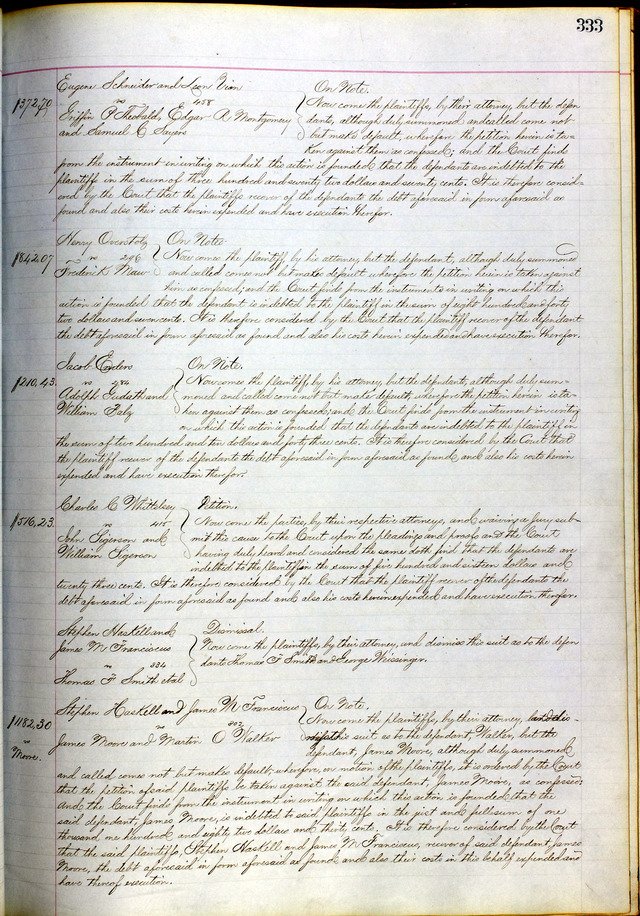 333
Eugene Schneider and Leon Vion On Note.
$372,70 vs 458 Now come the plaintiffs, by their attorney, but the defen
Griffin P Theobald, Edgar A Montgomery dants, although duly summoned and called come not
and Samuel C Sayers but make default, wherefore the petition herein is ta-
ken against them as confessed; and the Court finds
from the instrument in writing on which this action is founded that the defendants are indebted to the
plaintiffs in the sum of three hundred and seventy two dollars and seventy cents. It is therefore consid-
ered by the Court that the plaintiffs recover of the defendants the debt aforesaid in form aforesaid as
found and also their costs herein expended and have execution therefor.
Henry Overstolz On Note
$842,07 vs 276 Now come the plaintiff by his attorney, but the defendant, although duly summoned
Frederick and called comes not but makes default wherefore the petition herein is taken against
him as confessed; and the Court finds from the instruments in writing on which this
action is founded that the defendant is indebted to the plaintiff in the sum of eight hundred and forty
two dollars and seven cents. It is therefore considered by the Court that the plaintiff recover of the defendant
the debt aforesaid in form aforesaid as found and also his costs herein expended and have execution therefor.
Jacob Enders On Note.
$210,43. vs 284 Now comes the plaintiff by his attorney, but the defendants, although duly sum-
Adolph and moned and called come not but make default, wherefore the petition herein is ta-
William ken against them as confessed; and the Court finds from the instrument in writing
on which this action is founded that the defendants are indebted to the plaintiff in
the sum of two hundred and ten dollars and forty three cents. It is therefore considered by the Court that
the plaintiff recover of the defendants the debt aforesaid in form aforesaid as found and also his costs herein
expended and have execution therefor.
Charles C Whittelsey Petition.
$516,23. vs 415 Now come the parties, by their respective attorneys, and waiving a Jury sub-
John Sigerson and mit this cause to the Court upon the pleadings and proofs and the Court
William Sigerson having duly heard and considered the same doth find that the defendants are
indebted to the plaintiff in the sum of five hundred and sixteen dollars and
twenty three cents. It is therefore considered by the Court that the plaintiff recover of the defendants the
debt aforesaid in form aforesaid as found and also his costs herein expended and have execution therefor.
Stephen Haskell and Dismissal.
James M Franciscus Now come the plaintiffs, by their attorney, and dismiss this suit as to the defen
vs 334 dants Thomas F Smith and George Weissinger.
Thomas F Smith et al
Stephen Haskell and James M Franciscus On Note.
$1182,30 vs Now come the plaintiffs, by their attorney, and dis-
vs Moore. James Moore and Martin O Walker this suit as to the defendant Walker, but the
defendant, James Moore, although duly summoned
and called comes not but makes default; wherefore, on motion of the plaintiffs, it is ordered by the Court
that the petition of said plaintiffs be taken against the said defendant, James Moore, as confessed
And the Court finds from the instrument in writing on which this action is founded that the
said defendant, James Moore, is indebted to said plaintiffs in the just and full sum of one
thousand one hundred and eighty two dollars and thirty cents. It is therefore considered by the Court
that the said plaintiffs, Stephen Haskell and James M Franciscus, recover of said defendant, James
Moore, the debt aforesaid in form aforesaid as found and also their costs in this behalf expended and
have thereof execution.